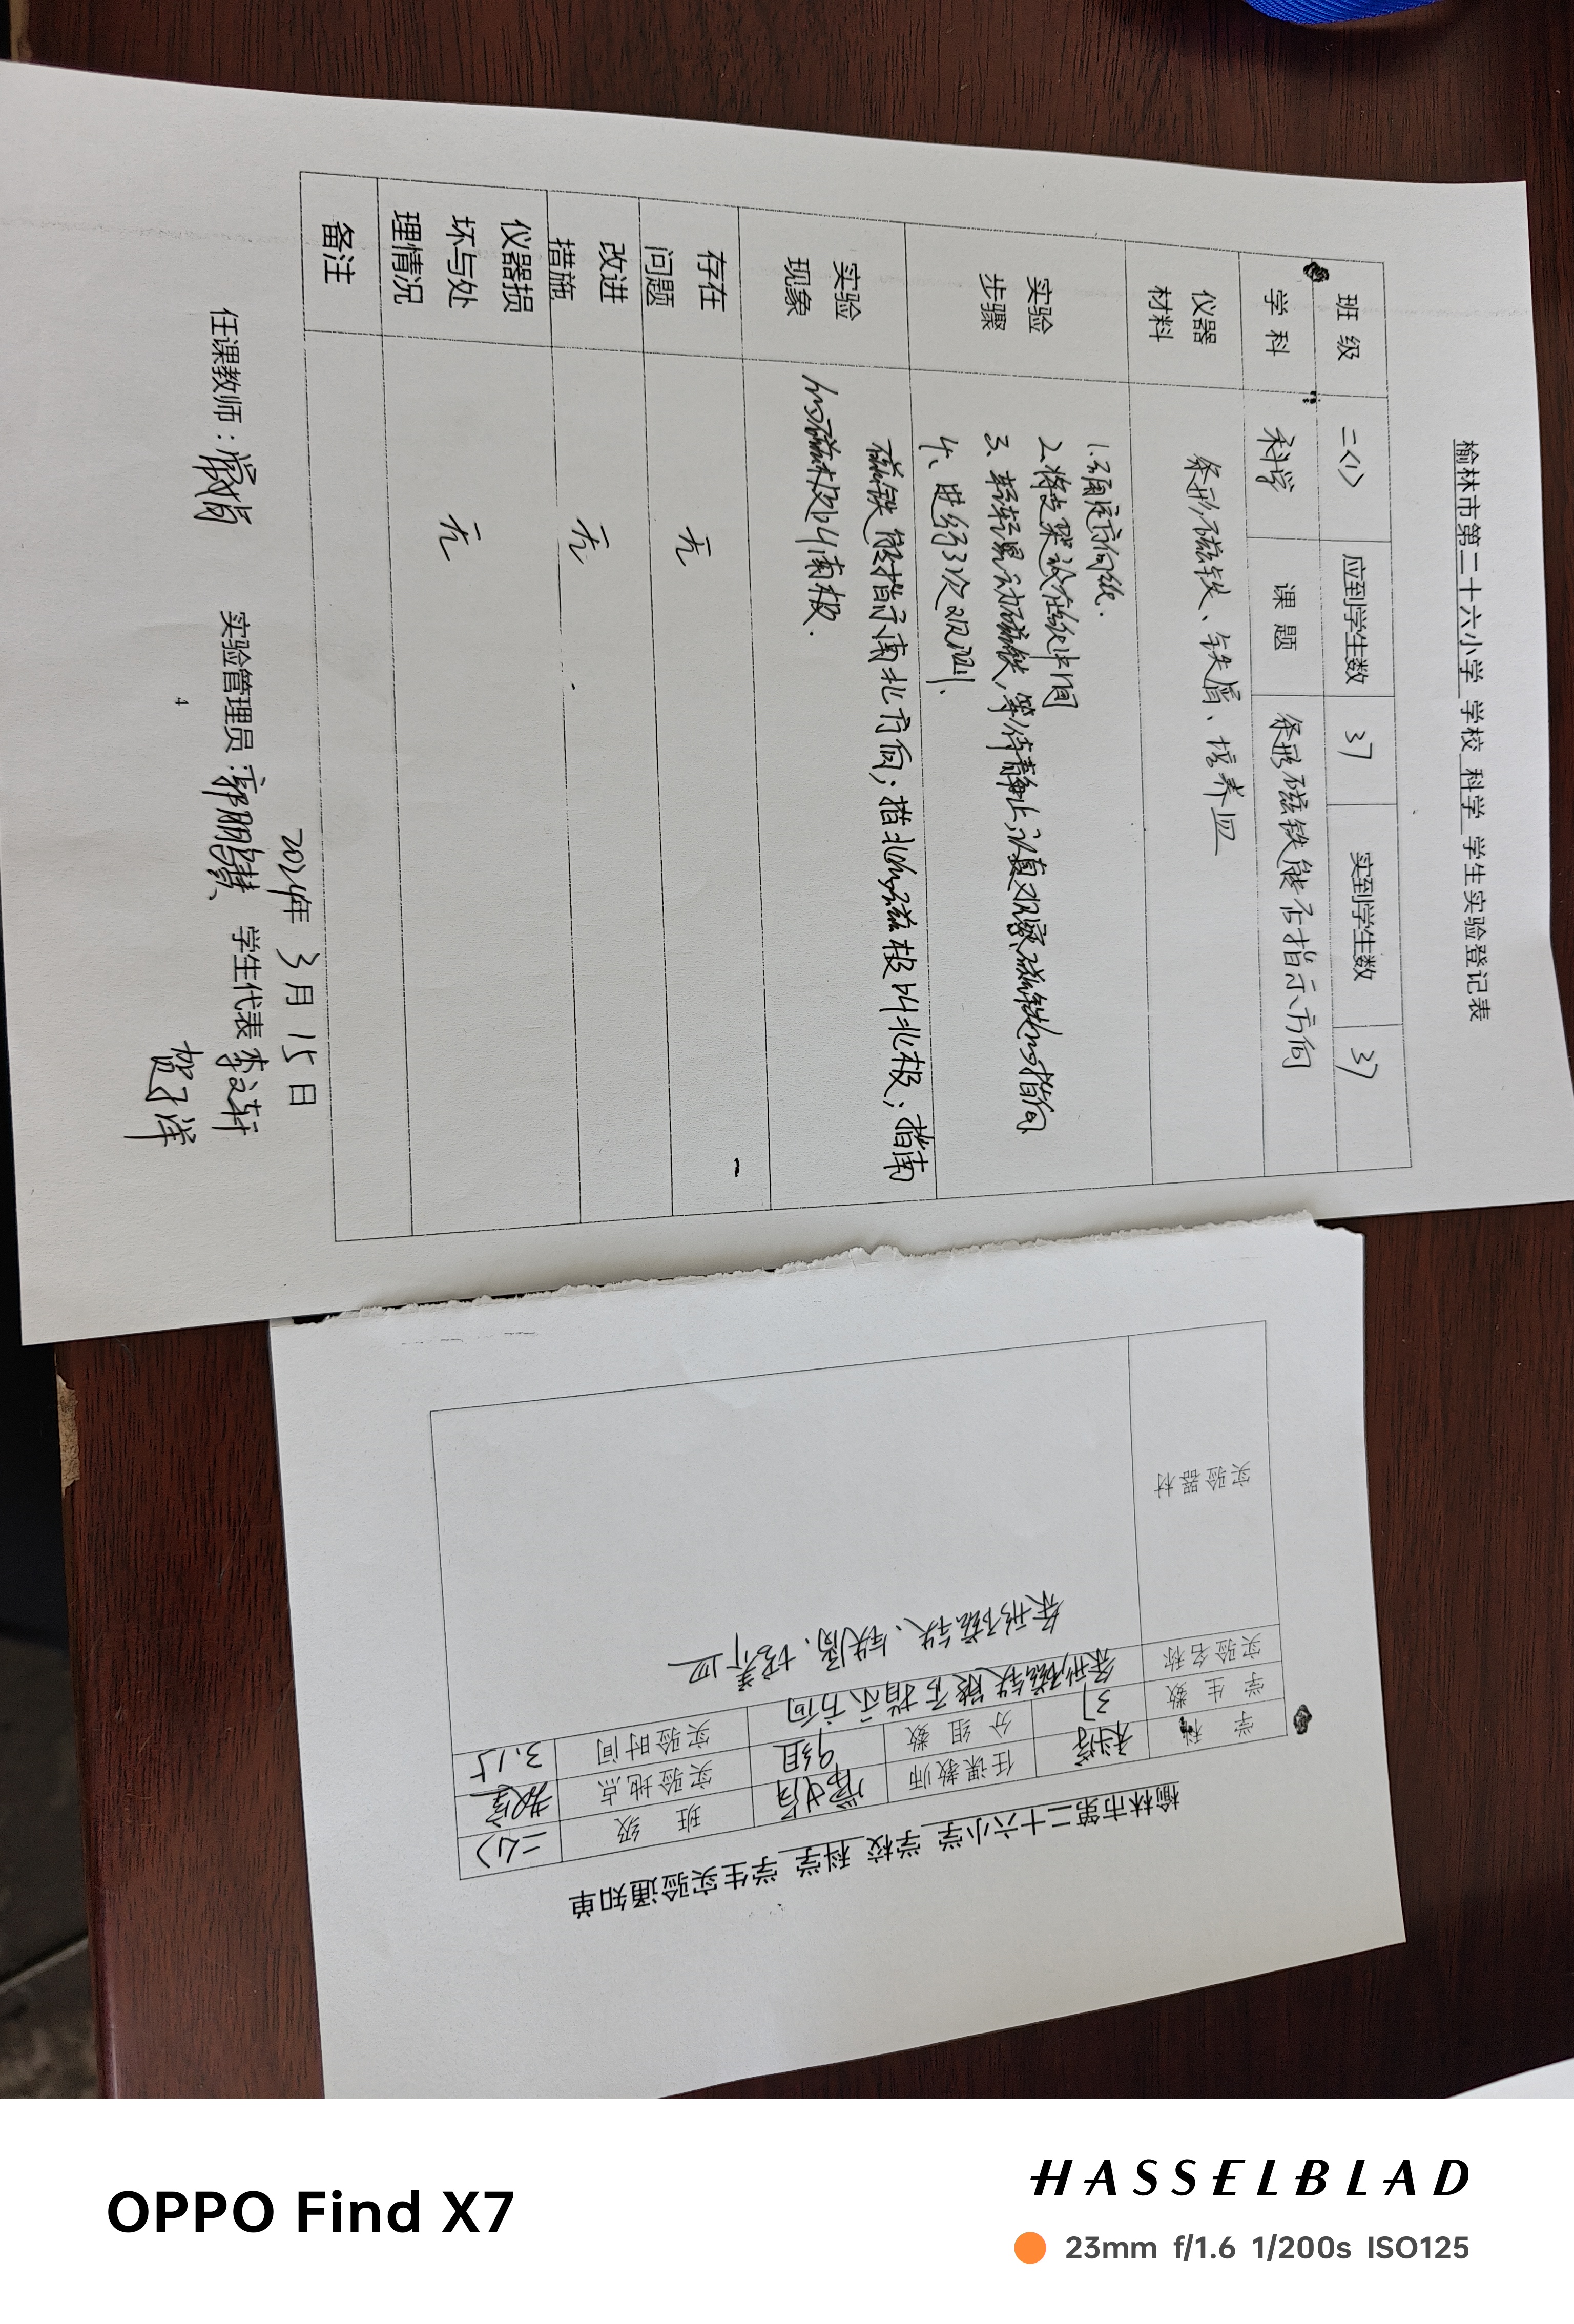 榆林市第二十六小学 学校 科学 学生实验登记表
班 级 二(1) 应到学生数 37 实到学生数 37
学 科 科学 课 题 条形磁铁能否指示方向
仪器
材料
条形磁铁、铁屑、培养皿
实验
步骤
1.确定方向纸.
2.将支架放在纸中间
3、轻轻晃动磁铁,等待静止,认真观察磁铁的指向
4、进行3次观测.
实验
现象
磁铁能指示南北方向;指北的磁极叫北极;指南
的磁极叫南极.
存在
问题
无
改进
措施
无
仪器损
坏与处
理情况
无
备注
2024年 3月 15日
任课教师: 实验管理员: 学生代表
贺子洋
4
榆林市第二十六小学 学校 科学 学生实验通知单
学 科 科学 任课教师 班 级 二(1)
学 生 数 37 分 组 数 9组 实验地点 教室
实验名称 条形磁铁能否指示方向 实验时间 3.15
实验器材
条形磁铁、铁屑、培养皿
OPPO Find X7
HASSELBLAD
23mm f/1.6 1/200s ISO125